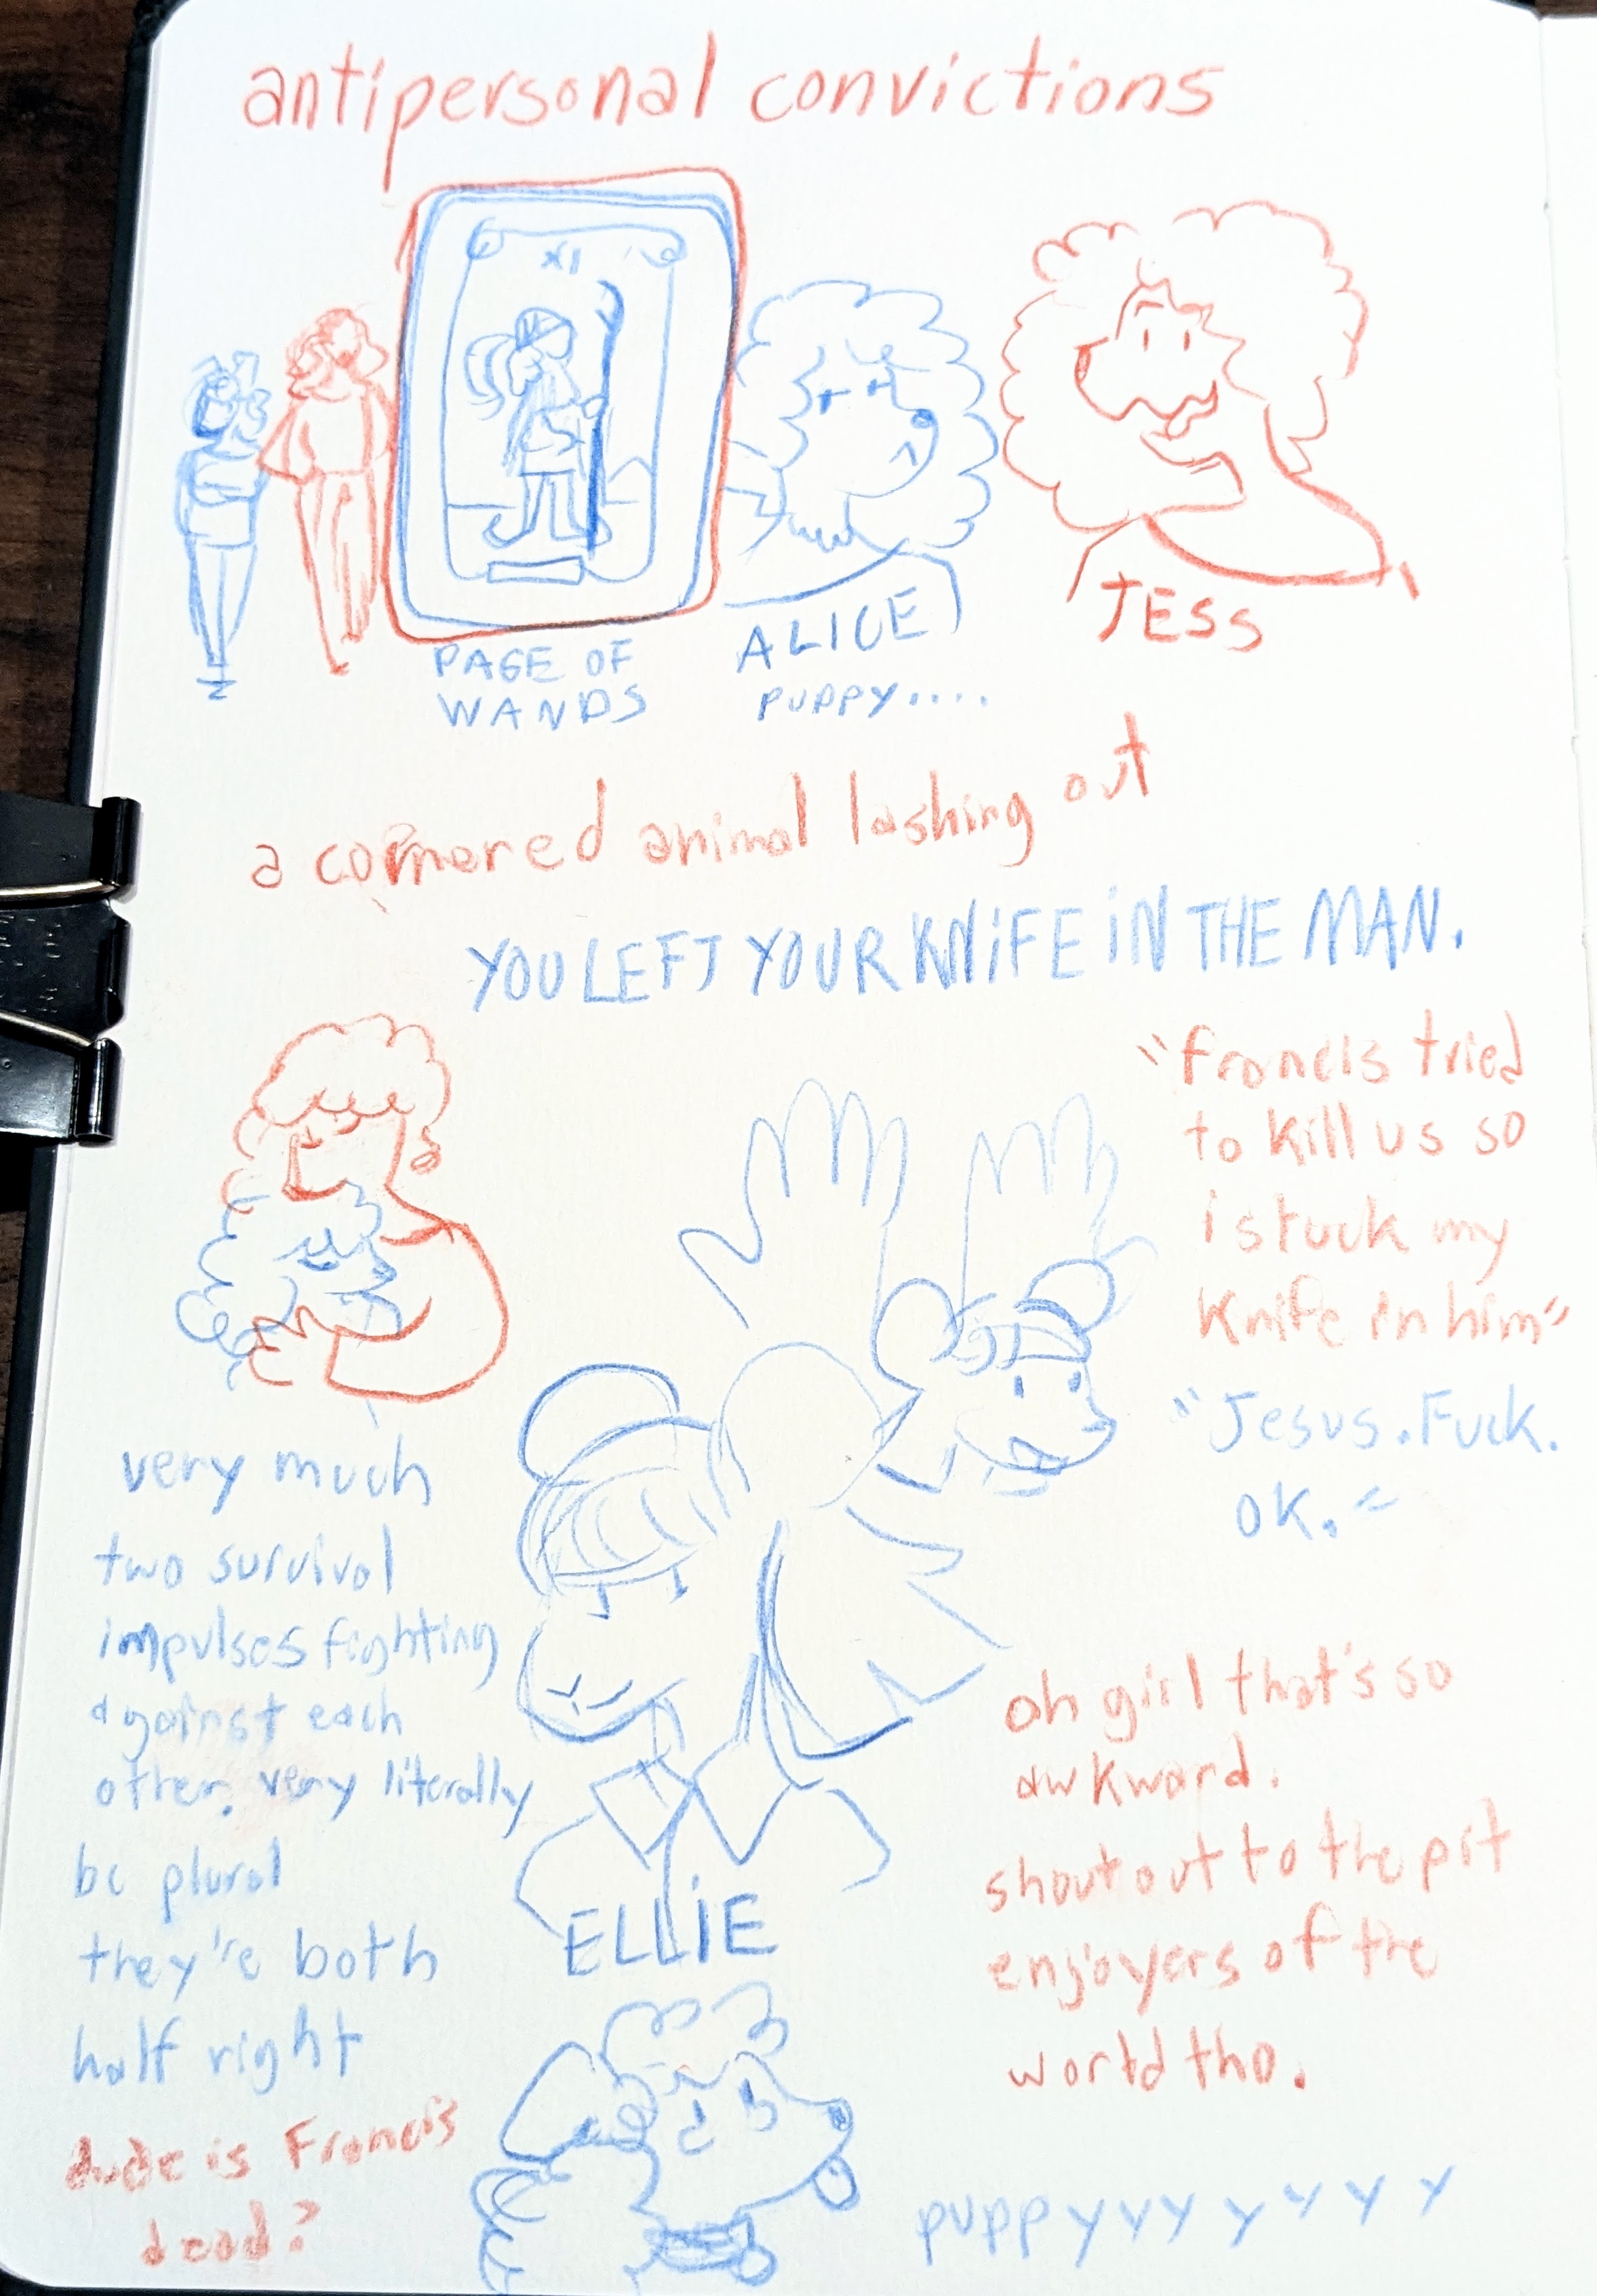 antipersonal convictions
XI
PAGE OF
WANDS
ALICE
PUPPY....
JESS
a cornered animal lashing out
YOU LEFT YOUR KNIFE IN THE MAN.
"francis tried
to kill us so
i stuck my
knife in him"
"Jesus. Fuck.
OK."
very much
two survival
impulses fighting
against each
other. very literally
be plural
they're both
half right
dude is Francis
dead?
ELLIE
oh girl that's so
awkward.
shout out to the pit
enjoyers of the
world tho.
puppyyyyyyy